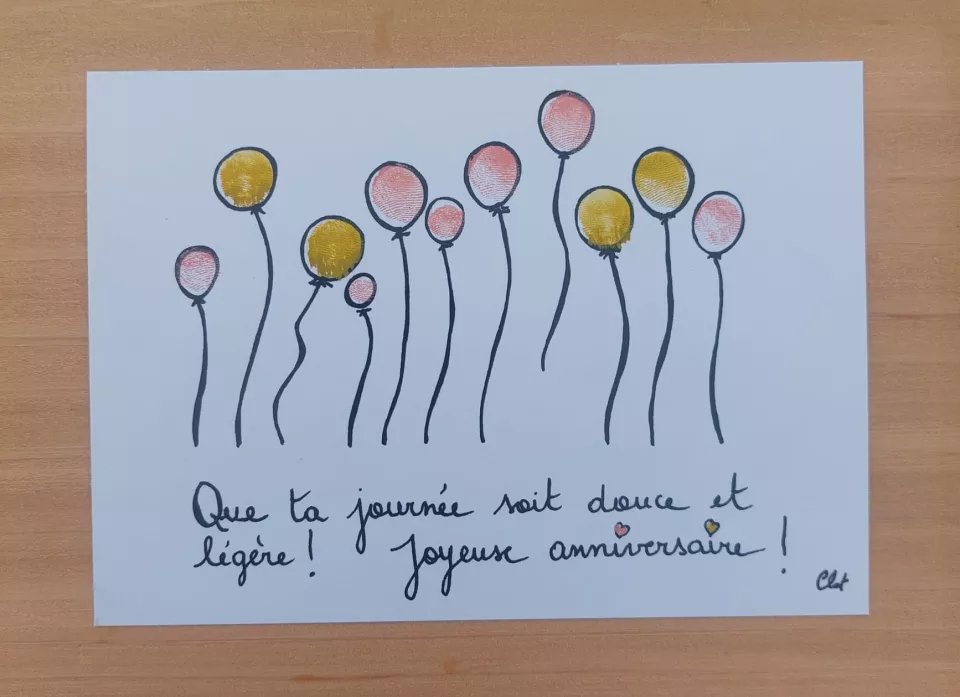 Que ta journée soit douce et
légère ! Joyeuse anniversaire !